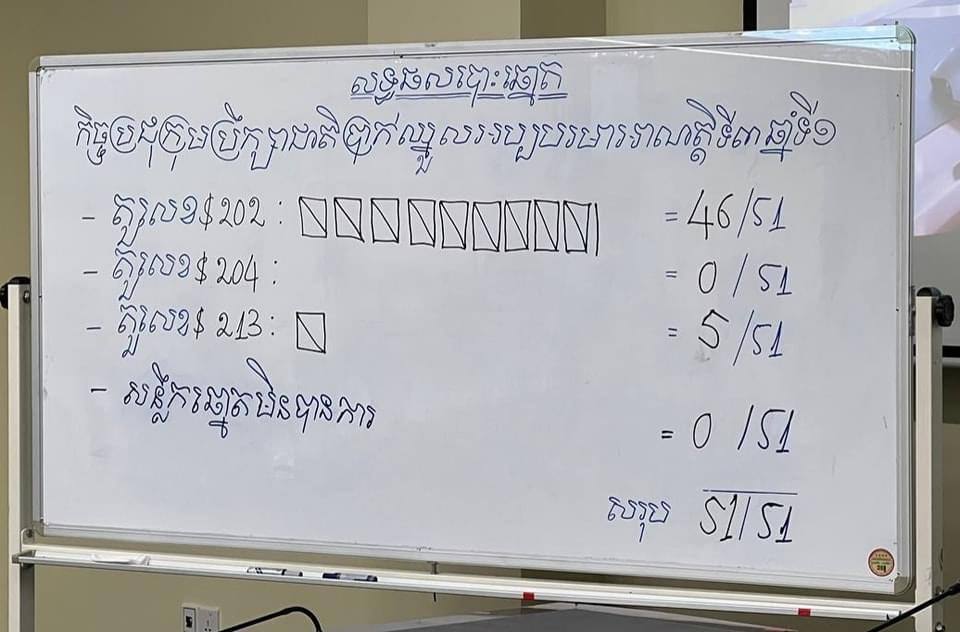 លទ្ធផលបោះឆ្នោត
កិច្ចប្រជុំក្រុមប្រឹក្សាជាតិប្រាក់ឈ្នួលអប្បបរមាអាណត្តិទី៣ ឆ្នាំទី១
- តួលេខ $ 202 : = 46/51
- តួលេខ $ 204 : = 0/51
- តួលេខ $ 213 : = 5/51
- សន្លឹកឆ្នោតមិនបានការ = 0/51
សរុប 51/51